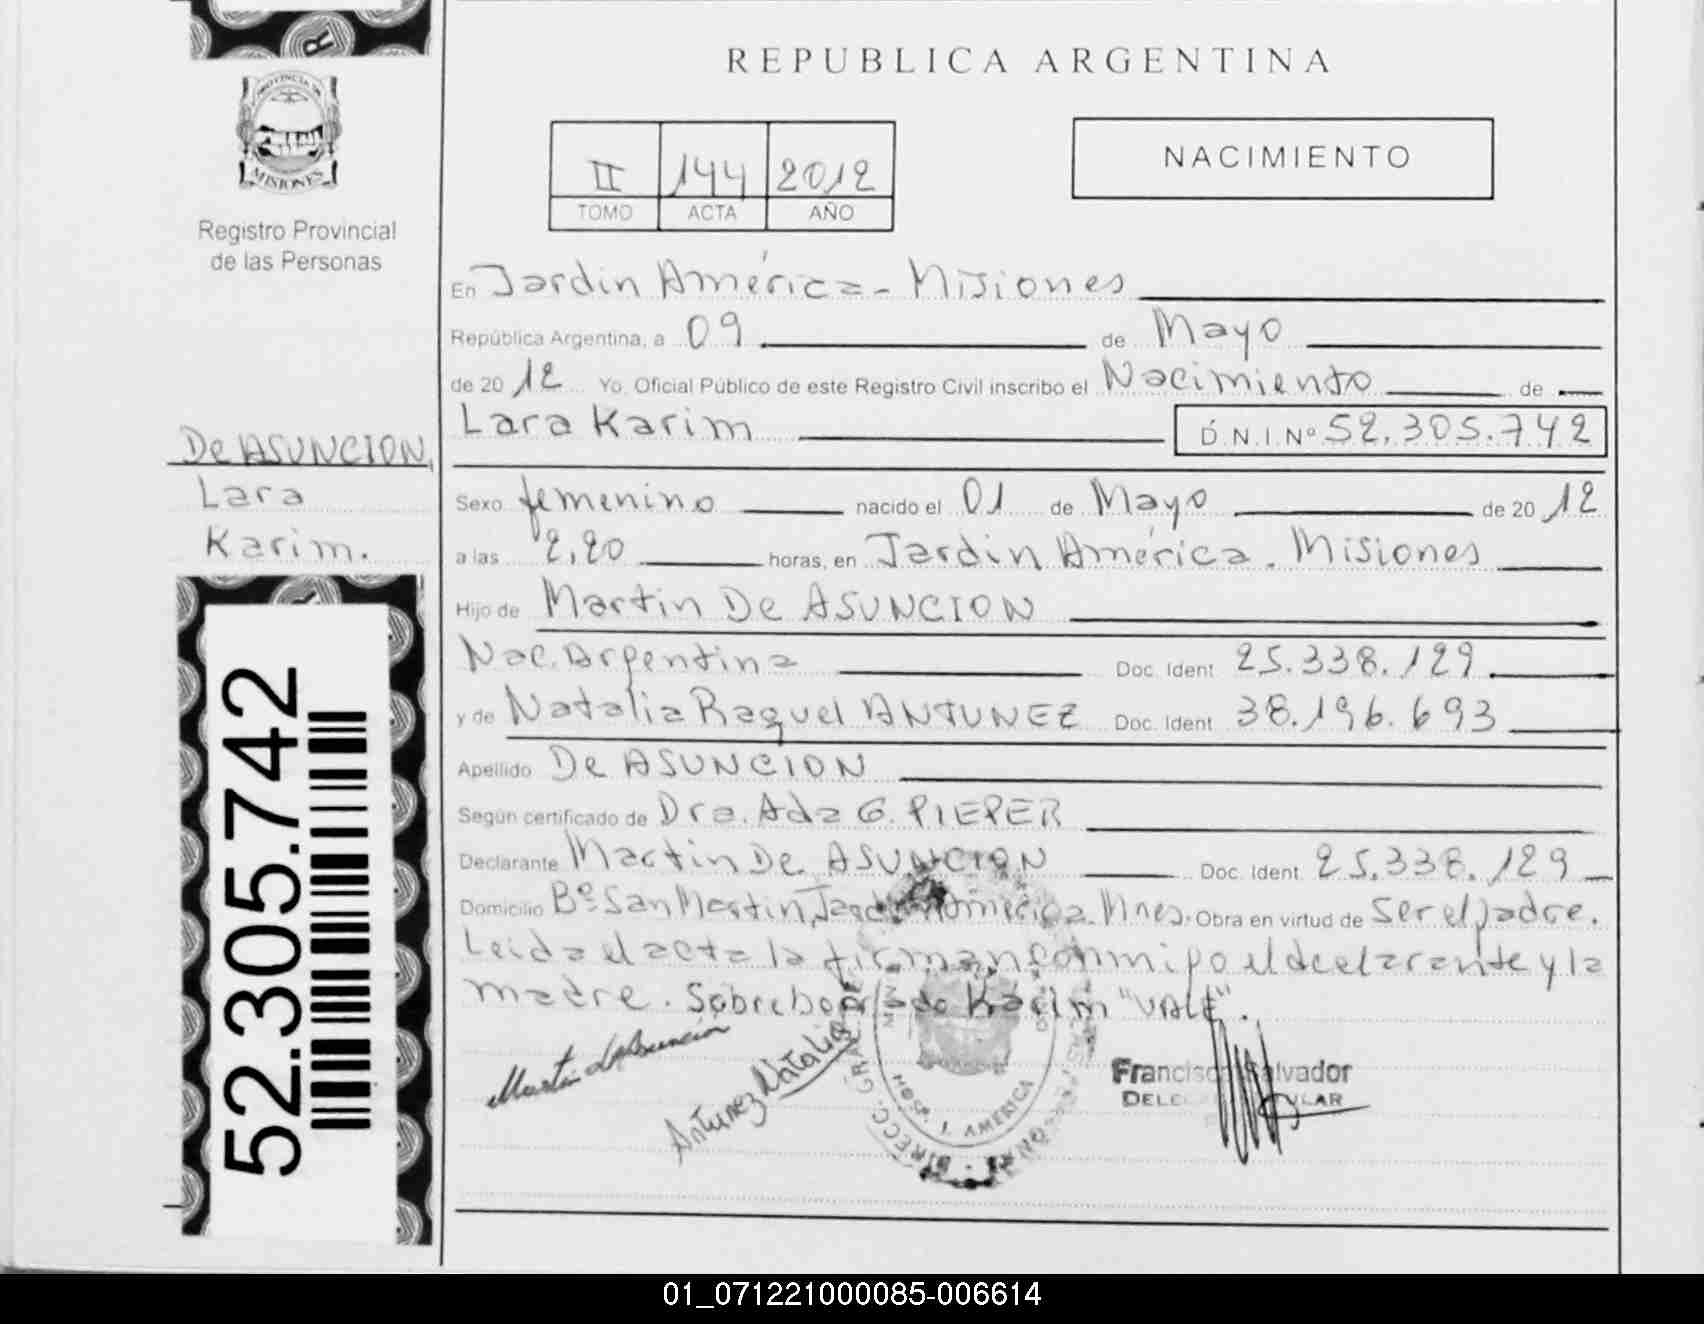 REPUBLICA ARGENTINA
PROVINCIA DE
MISIONES
Registro Provincial
de las Personas
II 144 2012
TOMO ACTA AÑO
NACIMIENTO
En Jardin América - Misiones
República Argentina, a 09 de Mayo
de 2012 Yo, Oficial Público de este Registro Civil inscribo el Nacimiento de
Lara Karim D.N.I.Nº 52.305.742
De ASUNCION,
Lara
Karim.
52.305.742
Sexo femenino nacido el 01 de Mayo de 2012
a las 2,20 horas, en Jardin América. Misiones
Hijo de Martin De ASUNCION
Nac. Argentina Doc. Ident 25.338.129
y de Natalia Raquel ANTUNEZ Doc. Ident 38.196.693
Apellido De ASUNCION
Según certificado de Dra. Ada G. PIEPER
Declarante Martin De ASUNCION Doc. Ident. 25.338.129
Domicilio Bº San Martin, Jardin América Mnes. Obra en virtud de ser el padre.
Leida el acta la firman conmigo el declarante y la
madre. Sobreborrado Karim "VALE".
Martin deAsunción
Antunez Natalia
HOSP. J. AMERICA
Francisco Salvador
01_071221000085-006614